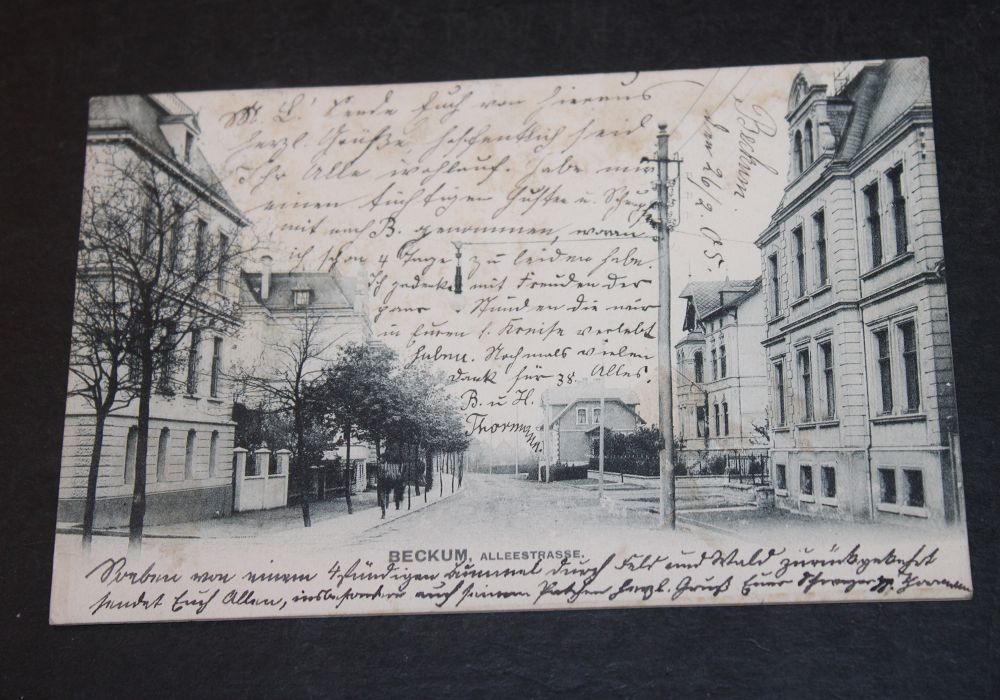 M. L! Sende Euch von hieraus
herzl. Grüße, hoffentlich seid
Ihr Alle wohlauf. Habe mir
einen tüchtigen Husten u. Schnupfen
mit nach B. genommen, woran
ich schon 4 Tage zu leiden habe.
Ich gedenke mit Freuden der
paar Stunden die wir
in Euren l. Kreise verlebt
haben. Nochmals vielen
dank für Alles.
B. u. H.
Beckum.
den 26/2 05.
BECKUM, ALLEESTRASSE.
Soeben von einem 4stündigen Bummel durch Feld und Wald zurückgekehrt
sendet Euch Allen, insbesondere auch seinem Patchen herzl. Gruß Euer